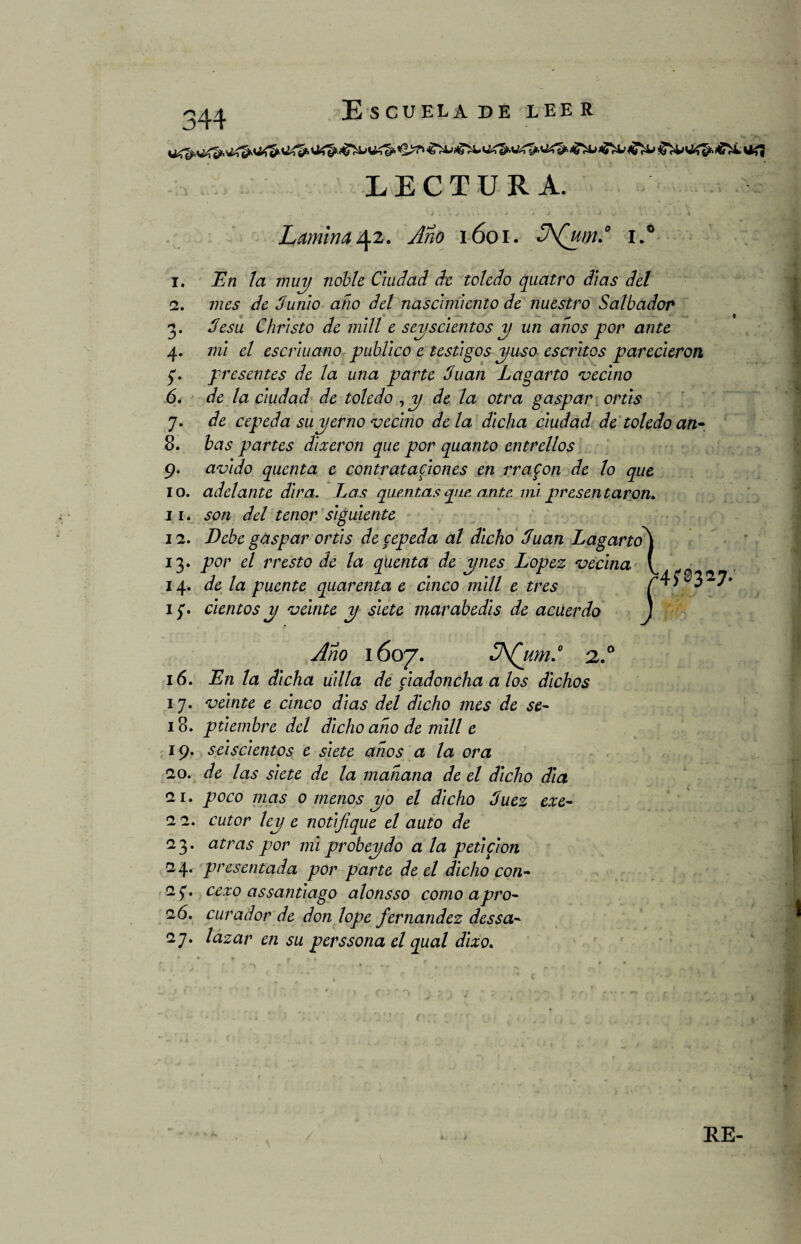 344 ESCUELA DE LEER
LECTURA.
Lamina 42. Año 1601. Num.º 1.º
1. En la muy noble Ciudad de toledo quatro dias del
2. mes de Junio año del nascimiento de nuestro Salbador
3. Jesu Christo de mill e seyscientos y un años por ante
4. mi el escriuano publico e testigos yuso escritos parecieron
5. presentes de la una parte Juan Lagarto vecino
6. de la ciudad de toledo , y de la otra gaspar ortis
7. de cepeda su yerno vecino de la dicha ciudad de toledo an-
8. bas partes dixeron que por quanto entrellos
9. avido quenta e contrataçiones en rraçon de lo que
10. adelante dira. Las quentas que ante mi presentaron.
11. son del tenor siguiente
12. Debe gaspar ortis de çepeda al dicho Juan Lagarto
13. por el rresto de la quenta de ynes Lopez vecina
14. de la puente quarenta e cinco mill e tres
15. cientos y veinte y siete marabedis de acuerdo
45@327.
Año 1607. Num.º 2.º
16. En la dicha uilla de çiadoncha a los dichos
17. veinte e cinco dias del dicho mes de se-
18. ptiembre del dicho año de mill e
19. seiscientos e siete años a la ora
20. de las siete de la mañana de el dicho dia
21. poco mas o menos yo el dicho Juez exe-
22. cutor ley e notifique el auto de
23. atras por mi probeydo a la petiçion
24. presentada por parte de el dicho con-
25. cexo assantiago alonsso como a pro-
26. curador de don lope fernandez dessa-
27. lazar en su perssona el qual dixo.
RE-